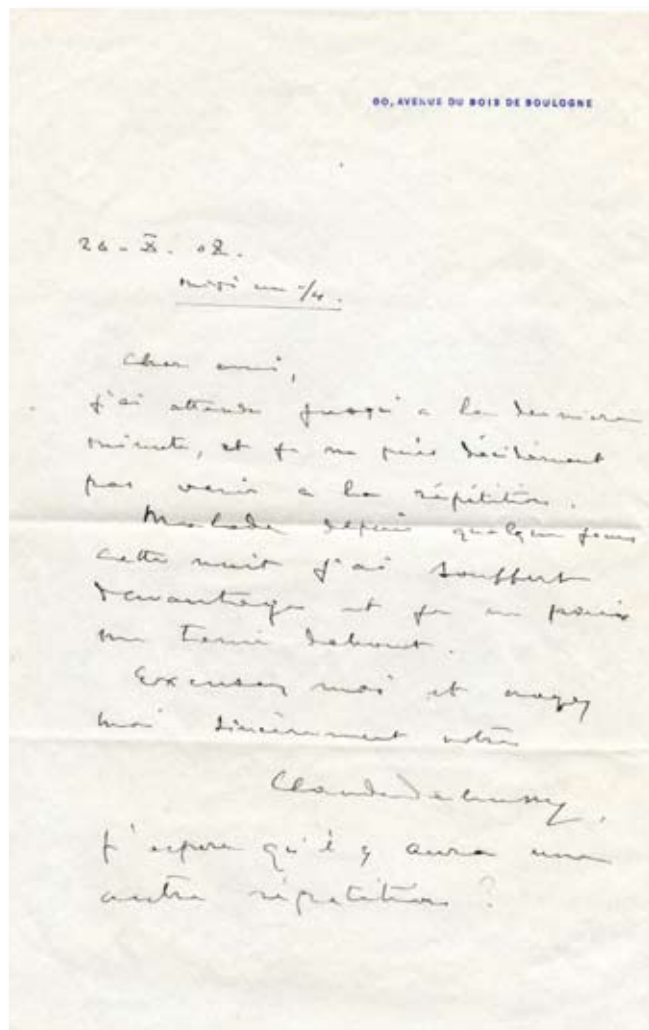 80, AVENUE DU BOIS DE BOULOGNE
24 - X. 08.
midi un 1/4.
Cher ami,
j'ai attendu jusqu'a la dernière
minute, et je ne puis décidément
pas venir a la répétition.
Malade depuis quelques jours
cette nuit j'ai souffert
davantage et je ne puis
me tenir debout.
Excusez moi et croyez
moi sincèrement votre
Claude Debussy.
J'espère qu'il y aura une
autre répétition ?